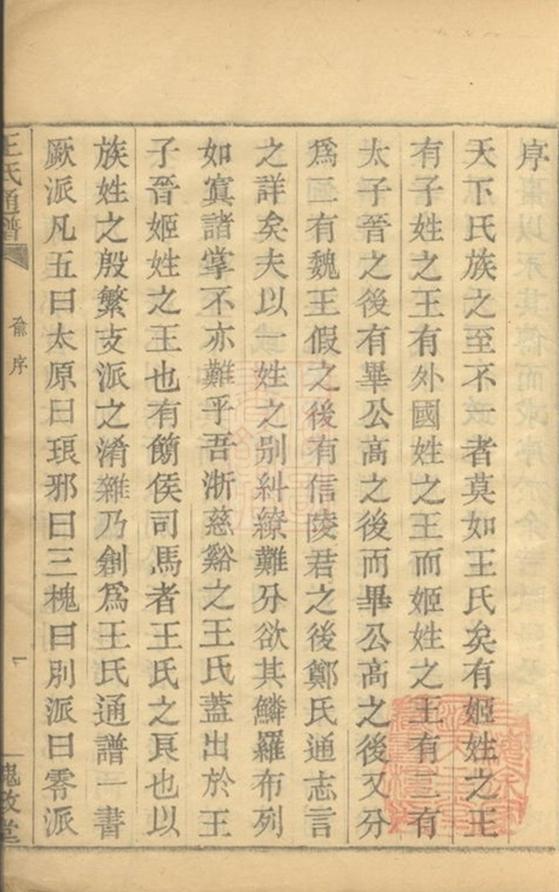 序
天下氏族之至不一者莫如王氏矣有姬姓之王
有子姓之王有外國姓之王而姬姓之王有二有
太子晉之後有畢公高之後而畢公高之後又分
爲二有魏王假之後有信陵君之後鄭氏通志言
之詳矣夫以一姓之別糾繚難分欲其鱗羅布列
如寘諸掌不亦難乎吾浙慈谿之王氏蓋出於王
子晉姬姓之王也有篰侯司馬者王氏之良也以
族姓之殷繁支派之淆雜乃創爲王氏通譜一書
厥派凡五曰太原曰琅邪曰三槐曰別派曰零派
王氏通譜
俞序
一
槐政堂